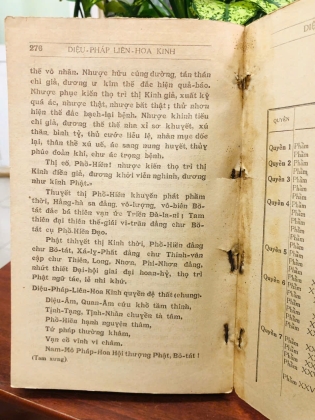 276 DIỆU-PHÁP LIÊN-HOA KINH
thế vô nhãn. Nhược hữu cúng dường, tán thán
chi giả, đương ư kim thế đắc hiện quả-báo.
Nhược phục kiến thọ trì thị Kinh giả, xuất kỳ
quá ác, nhược thật, nhược bất thật; thử nhơn
hiện thế đắc bạch-lại bệnh. Nhược khinh tiếu
chi giả, đương thế thế nha xỉ sơ khuyết, xú
thần, bình tỷ, thủ cước liễu lệ, nhãn mục giác
lại, thân thể xú uế, ác sang nung huyết, thủy
phúc đoản khí, chư ác trọng bệnh.
Thị cố, Phổ-Hiền! nhược kiến thọ trì thị
Kinh điển giả, đương khởi viễn nghinh, đương
như kính Phật.»
Thuyết thị Phổ-Hiền khuyến phát phẩm
thời, Hằng-hà sa đẳng, vô-lượng, vô-biên Bồ-
tát đắc bá thiên vạn ức Triền Đà-la-ni; Tam
thiên đại thiên thế-giái vi-trần đẳng chư Bồ-
tát cụ Phổ-Hiền Đạo.
Phật thuyết thị Kinh thời, Phổ-Hiền đẳng
chư Bồ-tát, Xá-lợi-Phất đẳng chư Thinh-văn
cập chư Thiên, Long, Nhơn, Phi-Nhơn đẳng,
nhứt thiết Đại-hội giai đại hoan-hỷ, thọ trì
Phật ngữ tác, lễ nhi khứ.
Diệu-Pháp-Liên-Hoa Kinh quyển đệ thất (chung).
Diệu-Âm, Quan-Âm cứu khổ tầm thinh,
Tịnh-Tạng, Tịnh-Nhãn chuyển tà tâm,
Phổ-Hiền hạnh nguyện thâm,
Tứ pháp thường khâm,
Vạn cổ vĩnh vi châm.
Nam-Mô Pháp-Hoa Hội thượng Phật, Bồ-tát!
(Tam xưng)
QUYỂN
Quyển 1 Phẩm
Phẩm
Quyển 2 Phẩm
Phẩm
Quyển 3 Phẩm
Phẩm
Phẩm
Quyển 4 Phẩm
Phẩm
Phẩm
Phẩm
Phẩm
Phẩm
Quyển 5 Phẩm
Phẩm
Phẩm
Phẩm
Quyển 6 Phẩm
Phẩm
Phẩm
Phẩm
Phẩm
Quyển 7 Phẩm
Phẩm
Phẩm
Phẩm
Phẩm